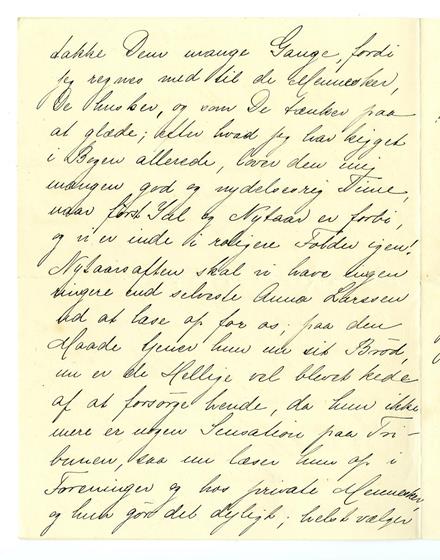 takke Dem mange Gange, fordi
jeg regnes med til de Mennesker,
De husker, og som De tænker paa
at glæde; efter hvad jeg har kigget
i Bogen allerede, lover den mig
mangen god og nydelsesrig Time,
naar først Jul og Nytaar er forbi,
og vi er inde i roligere Folder igen!
Nytaarsaften skal vi have ingen
ringere end selveste Anna Larssen
til at læse op for os; paa den
Maade tjener hun nu sit Brød,
nu er de Hellige vel blevet kede
af at forsørge hende, da hun ikke
mere er nogen Sensation paa Tri-
bunen, saa nu læser hun op i
Foreninger og hos private Mennesker,
og hun gør det dejligt; helst vælger